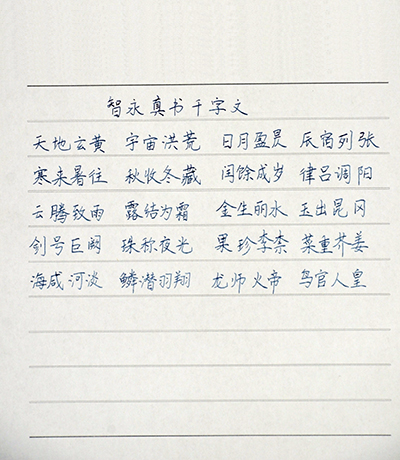 智永真书千字文
天地玄黄 宇宙洪荒 日月盈昃 辰宿列张
寒来暑往 秋收冬藏 闰馀成岁 律吕调阳
云腾致雨 露结为霜 金生丽水 玉出昆冈
剑号巨阙 珠称夜光 果珍李柰 菜重芥姜
海咸河淡 鳞潜羽翔 龙师火帝 鸟官人皇